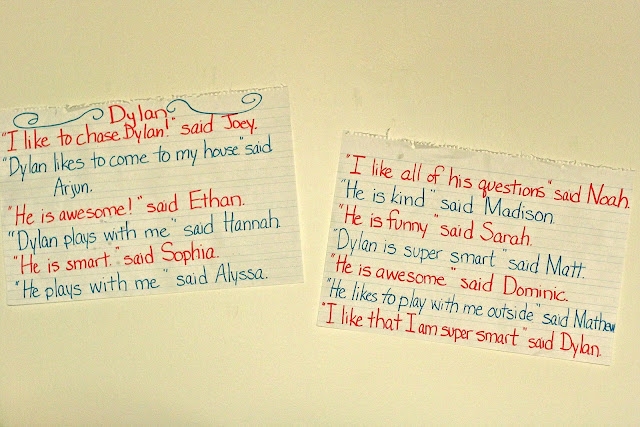 Dylan
"I like to chase Dylan!" said Joey.
"Dylan likes to come to my house" said
Arjun.
"He is awesome!" said Ethan.
"Dylan plays with me" said Hannah.
"He is smart." said Sophia.
"He plays with me" said Alyssa.
"I like all of his questions" said Noah.
"He is kind" said Madison.
"He is funny" said Sarah.
"Dylan is super smart" said Matt.
"He is awesome" said Dominic.
"He likes to play with me outside" said Mathew
"I like that I am super smart" said Dylan.